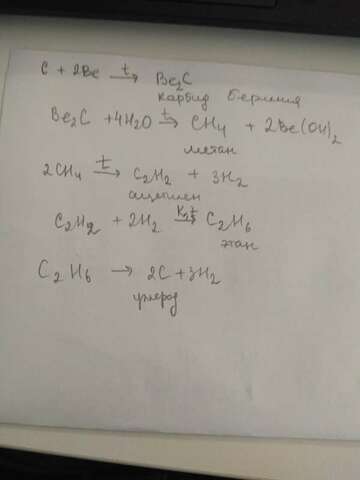 C + 2Be →t Be₂C
карбид бериллия
Be₂C + 4H₂O →t CH₄ + 2Be(OH)₂
метан
2CH₄ →t C₂H₂ + 3H₂
ацетилен
C₂H₂ + 2H₂ →K,t C₂H₆
этан
C₂H₆ → 2C + 3H₂
углерод